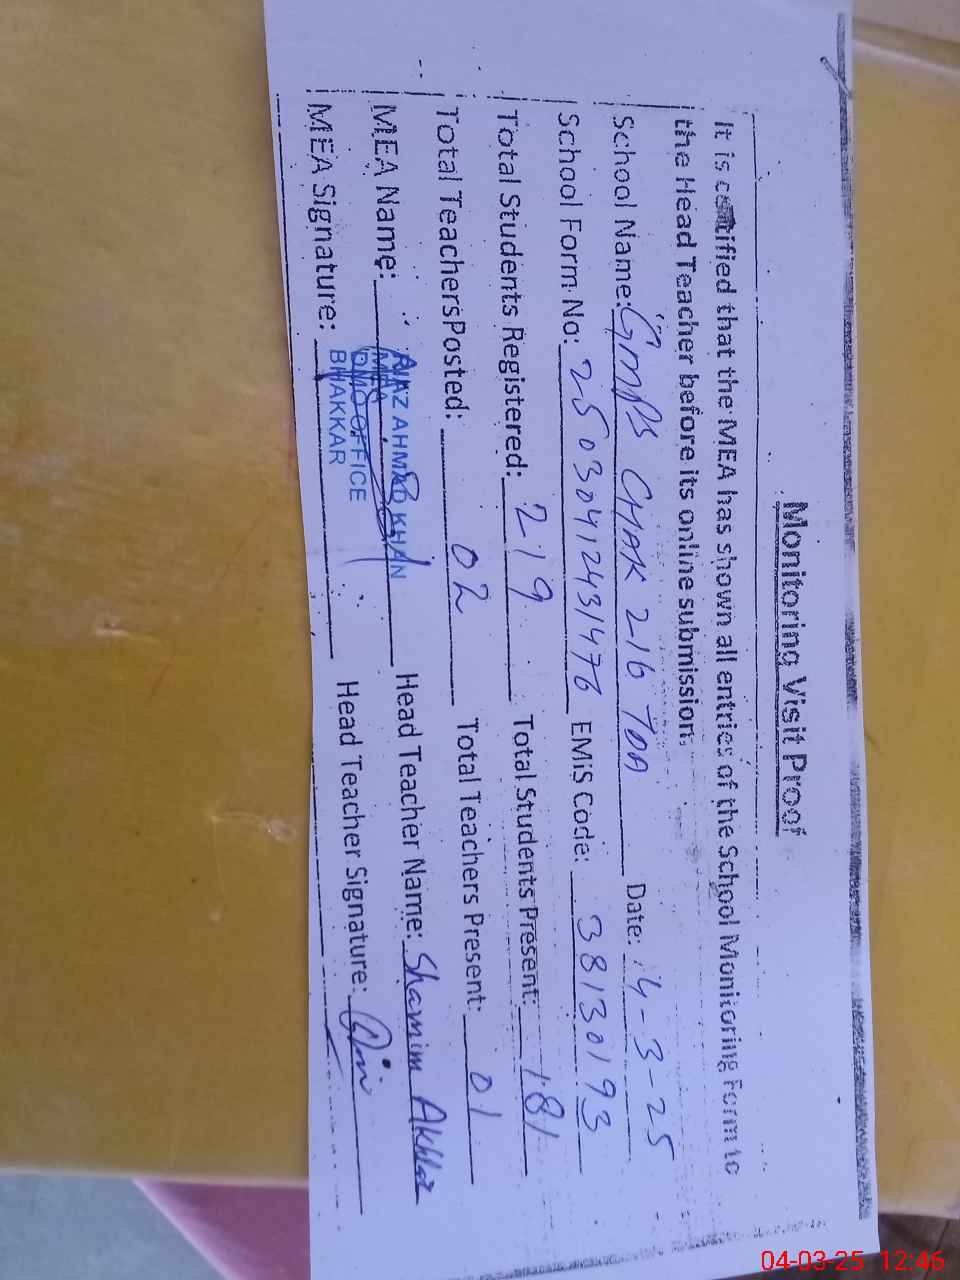 Monitoring Visit Proof
It is certified that the MEA has shown all entries of the School Monitoring Form to
the Head Teacher before its online submission.
School Name: GMPS CHAK 216 TDA Date: 4-3-25
School Form No: 25030412431476 EMIS Code: 38130193
Total Students Registered: 219 Total Students Present: 181
Total TeachersPosted: 02 Total Teachers Present: 01
MEA Name: Head Teacher Name: Shamim Akhtar
MEA Signature: Head Teacher Signature:
AIAZ AHMAD KHAN
MEA
DMO OFFICE
BHAKKAR
04-03-25 12:46